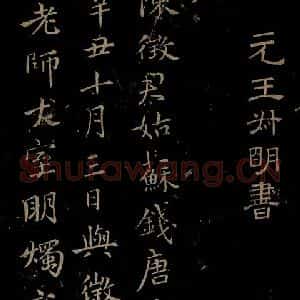 元王叔明書
陳徵君姑蘇錢唐
辛丑十月二日與徵
老師丈室明燭
Shufawang.CN